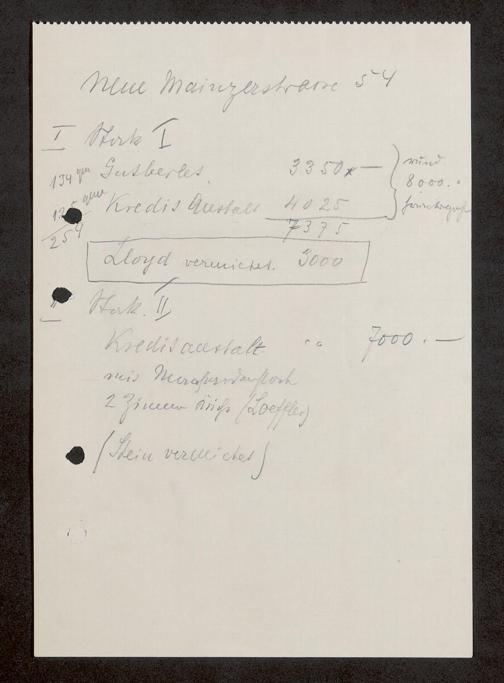 Neue Mainzerstrasse 54
I Stock I
134 qm Gutberlet 3350.—
Kreditanstalt 4025
254 7375
rund
8000.
Lloyd vermietet. 3000
II Stock. II
Kreditanstalt " 7000.—
2 Zimmer (Loeffler)
(Stein vermietet)